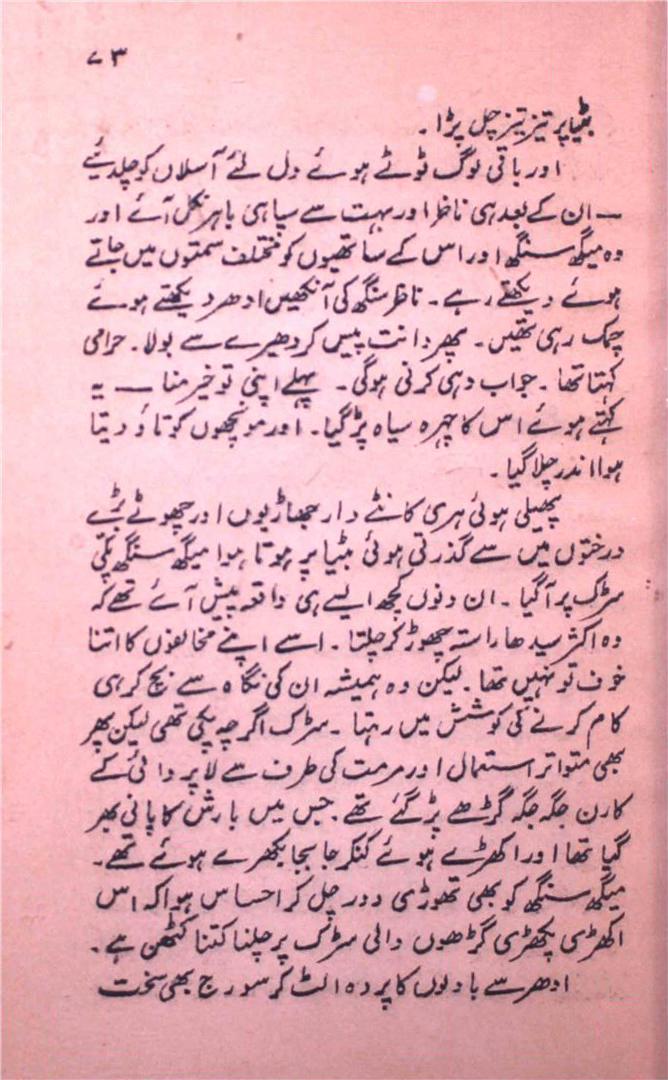 ۷۳
بٹیا پر تیز تیز چل پڑا۔
اور باقی لوگ ٹوٹے ہوئے دل لئے آسلاں کو چلدیئے
— ان کے بعد ہی ناظر اور بہت سے سپاہی باہر نکل آئے اور
وہ میگھ سنگھ اور اس کے ساتھیوں کو مختلف سمتوں میں جاتے
ہوئے دیکھتے رہے۔ ناظر سنگھ کی آنکھیں ادھر دیکھتے ہوئے
چمک رہی تھیں۔ پھر دانت پیس کر دھیرے سے بولا۔ حرامی
کہتا تھا۔ جواب دہی کرنی ہوگی۔ پہلے اپنی تو خیر منا — یہ
کہتے ہوئے اس کا چہرہ سیاہ پڑ گیا۔ اور مونچھوں کو تاؤ دیتا
ہوا اندر چلا گیا۔
پھیلی ہوئی ہری کانٹے دار جھاڑیوں اور چھوٹے بڑے
درختوں میں سے گذرتی ہوئی بٹیا پر ہوتا ہوا میگھ سنگھ پکّی
سڑک پر آگیا۔ ان دنوں کچھ ایسے ہی واقعہ پیش آئے تھے کہ
وہ اکثر سیدھا راستہ چھوڑ کر چلتا۔ اسے اپنے مخالفوں کا اتنا
خوف تو نہیں تھا۔ لیکن وہ ہمیشہ ان کی نگاہ سے بچ کر ہی
کام کرنے کی کوشش میں رہتا۔ سڑک اگرچہ پکی تھی لیکن پھر
بھی متواتر استمال اور مرمت کی طرف سے لاپروائی کے
کارن جگہ جگہ گڑھے پڑ گئے تھے۔ جس میں بارش کا پانی بھر
گیا تھا اور اکھڑے ہوئے کنکر جا بجا بکھرے ہوئے تھے۔
میگھ سنگھ کو بھی تھوڑی دور چل کر احساس ہوا کہ اس
اکھڑی پکھڑی گڑھوں والی سڑک پر چلنا کتنا کٹھن ہے۔
ادھر سے بادلوں کا پردہ الٹ کر سورج بھی سخت